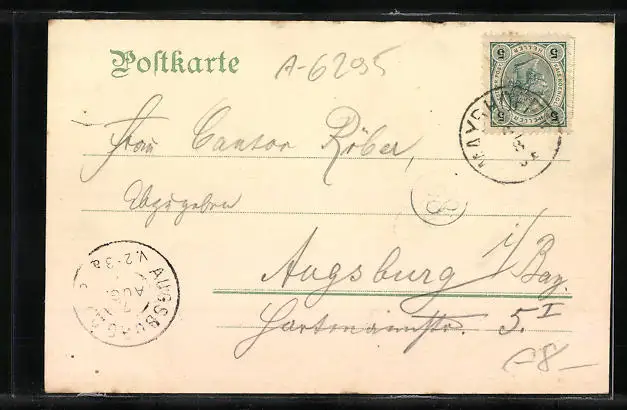 Postkarte
A-6295
5 HELLER 5
5 HELLER 5
MAYRHOFEN
Frau Cantor Röber,
Abzugeben
Augsburg i/Bay.
Hartmannstr. 5.I
AUGSBURG
V.2-3
AUG.